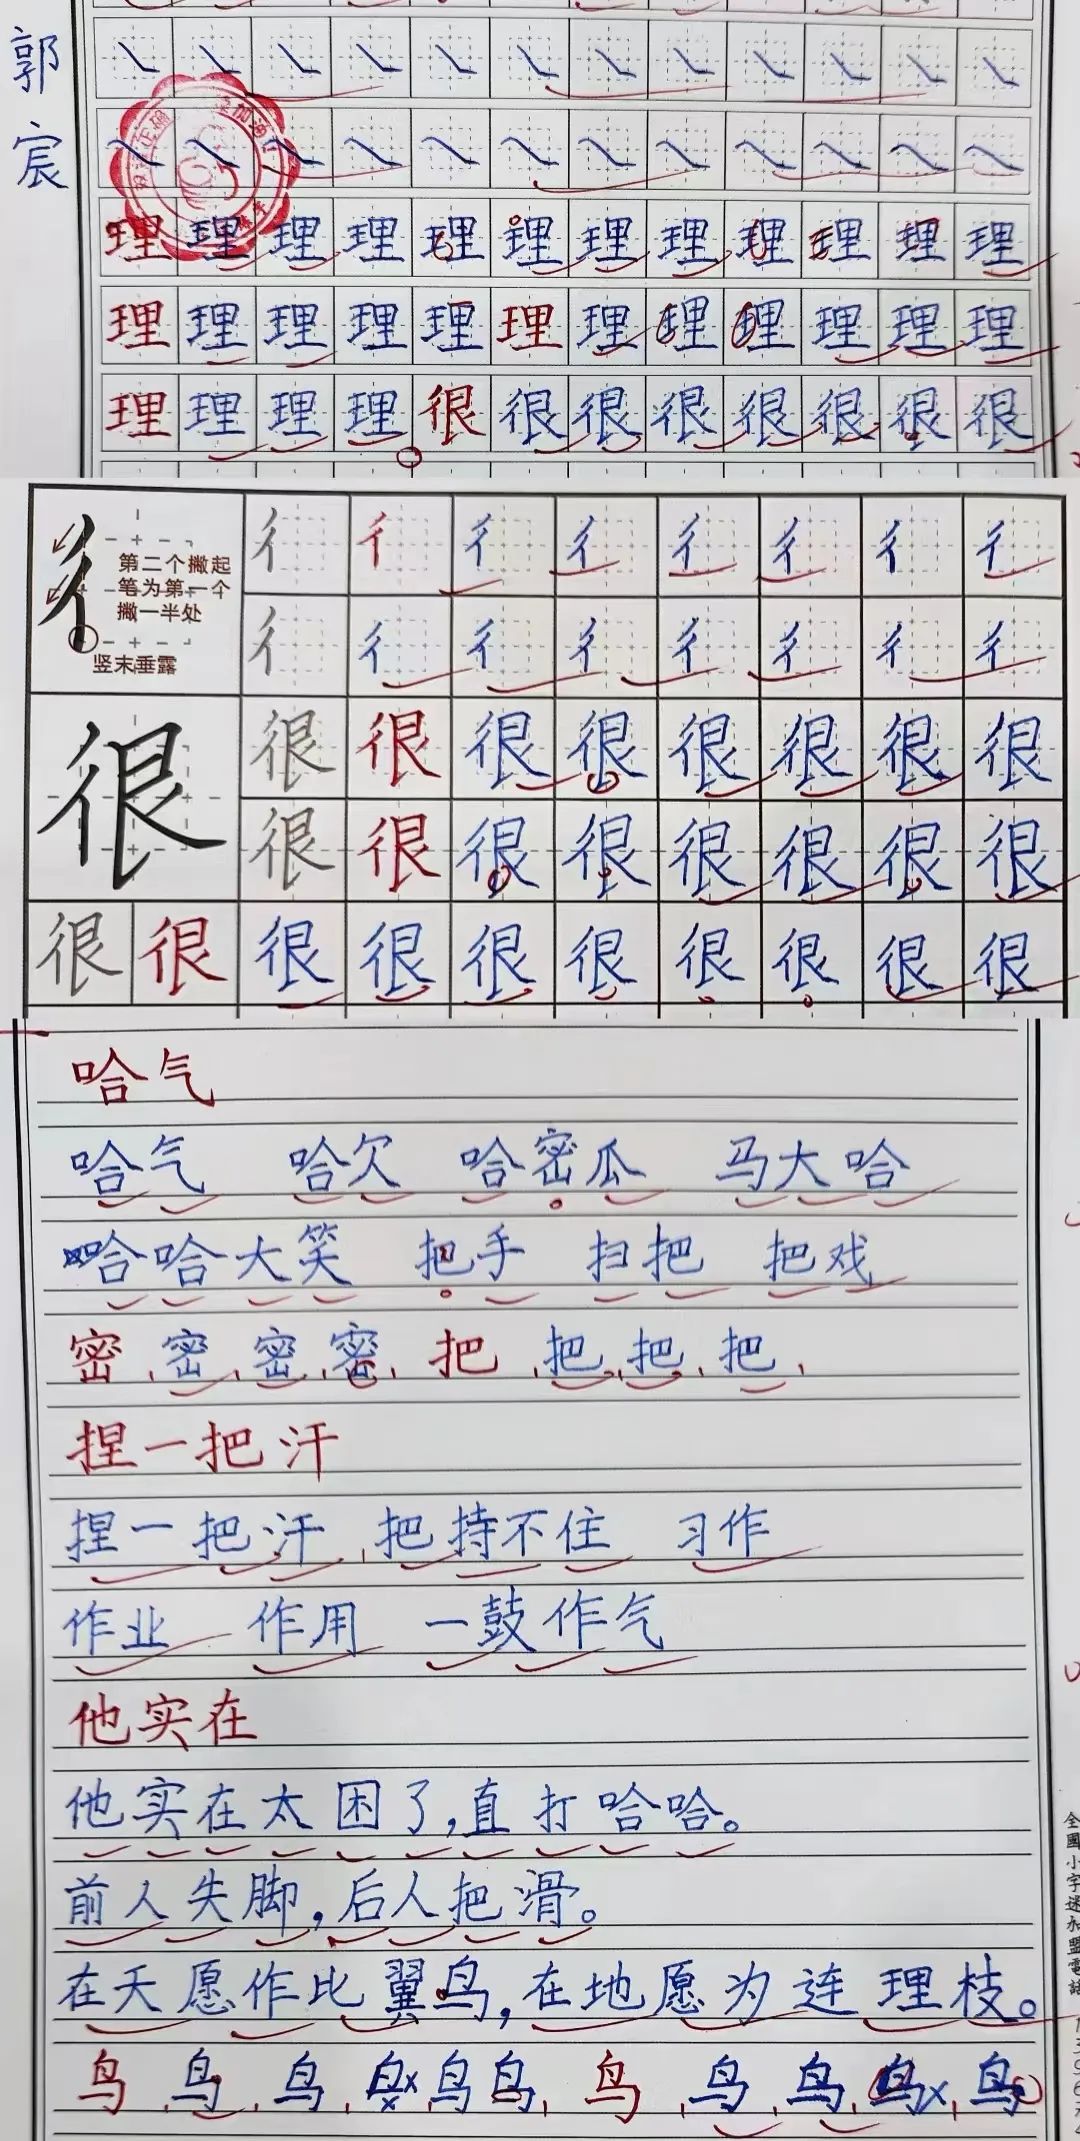 郭宸
理理理理理理理理理理理理
理理理理理理理理理理理理
理理理理很很很很很很很很
第二个撇起
笔为第一个
撇一半处
竖末垂露
彳彳彳彳彳彳彳彳彳
彳彳彳彳彳彳彳彳
很很很很很很很很很
很很很很很很很很
很很很很很很很很很很
哈气
哈气 哈欠 哈密瓜 马大哈
哈哈大笑 把手 扫把 把戏
密密密密把把把把
捏一把汗
捏一把汗 把持不住 习作
作业 作用 一鼓作气
他实在
他实在太困了,直打哈哈。
前人失脚,后人把滑。
在天愿作比翼鸟,在地愿为连理枝。
鸟鸟鸟鸟鸟鸟鸟鸟鸟鸟鸟
全國小字迷加盟電話